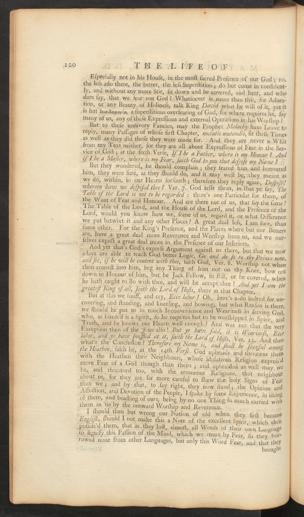 120 THE LIFE OF
Especially not in his House, in the most sacred Presence of our God; no,
the less ado there, the better, the less Superstition; do but come in confident-
ly, and without any more Stir, sit down and be covered, and hear, and who
dare say, that we fear not God? Whatsoever is more than this, for Adora-
tion, or any Beauty of Holiness, talk King David what he will of it, yet it
is but a superstitious courting of God, for who requires
many of us, any of these Expressions and external Operations in our Worship?
But to these unmovery Fancies, may the Prophet Malachy have Leave to
reply, many Passages of whose first Chapter, mutatis mutandis, fit these Times
as well as they did those they were made for. And they are never a Whit
from my Text neither, for they are all about Expressions of Fear in the Ser-
vice of God; at the sixth Verse, if I be a Father, where is my Honour? And
if I be a Master, where is my Fear, saith God to you that despise my Name?
But they wondered, he should complain; they feared him, and honoured
him, they were sure, as they should do, and it may well be, they meant as
we do, within, in our Hearts forsooth; therefore they reply again, Despise?
wherein have we despised thee? Ver. 7. God tells them, in that ye say, The
Table of the Lord is not to be regarded: there's one Instance for them, of
the Want of Fear and Honour. And are there not of us, that say the same?
The Table of the Lord, and the House of the Lord, and the Presence of the
Lord, would you know how we, some of us, regard it, or what Difference
we put betwixt it and any other Place? A great deal less, I am sure, than
some other. For the King's Presence, and the Places where but our Betters
are, have a great deal more Reverence and Worship from us, and we our-
selves expect a great deal more in the Presence of our Inferiors.
And yet that's God's express Argument against us there, but that we now
adays are able to teach God better Logic, Go and do so to thy Prince now,
and see, if he will be content with thee, saith God, Ver. 8. Worship not when
then comest into him, beg any Thing of him not on thy Knee, bow not
down in Honour of him, but be Jack Fellow, sit still, or be covered, when
he hath ought to do with thee, and will he accept thee? And yet I am the
greatest King of all, saith the Lord of Hosts, there in that Chapter.
But at this we snuff, and cry, Ecce labor! Oh, here's a-do indeed for un-
covering, and standing, and kneeling, and bowing; but what Reason is there,
we should be put to so much Inconvenience and Weariness in serving God,
who, as himself is a Spirit, so he requires but to be worshipped in Spirit, and
Truth, and he knows our Hearts well enough? And was not that the very
Hangman then of the Jews also? But ye have said, it is Weariness,
labor, and ye have snuffed at it, saith the Lord of Hosts, Ver. 13. And then
what's the Conclusion? Therefore my Name is, and shall be blessed among
the Heathen, saith he, at the 14th Verse. God upbraids and threatens them
with the Heathen their Neighbours, whose idolatrous Religion express'd
more Fear of a God though than theirs; and upbraided as well may we
be, and threatned too, with the erroneous Religions, their neighbour
about us, for they are far more careful to shew the holy Signs of Fear
than we; and by that, to say right, they now stand; the Opinion and
Affection, and Devotion of the People, I speak by some Experience, in seeing
of them, and beading of ours, being by no one Thing so much carried with
them as by the outward Worship and Reverence.
I should then but wrong our Nation of old when they first became
English, should I not make this a Note of the excellent Spirit, which then
possess'd them, that as they lost, almost, all Words of their own Language
to signify this Passion of the Mind, which we mean by Fear, so they bor-
rowed none from other Languages, but only this Word Fear, and that they
brought